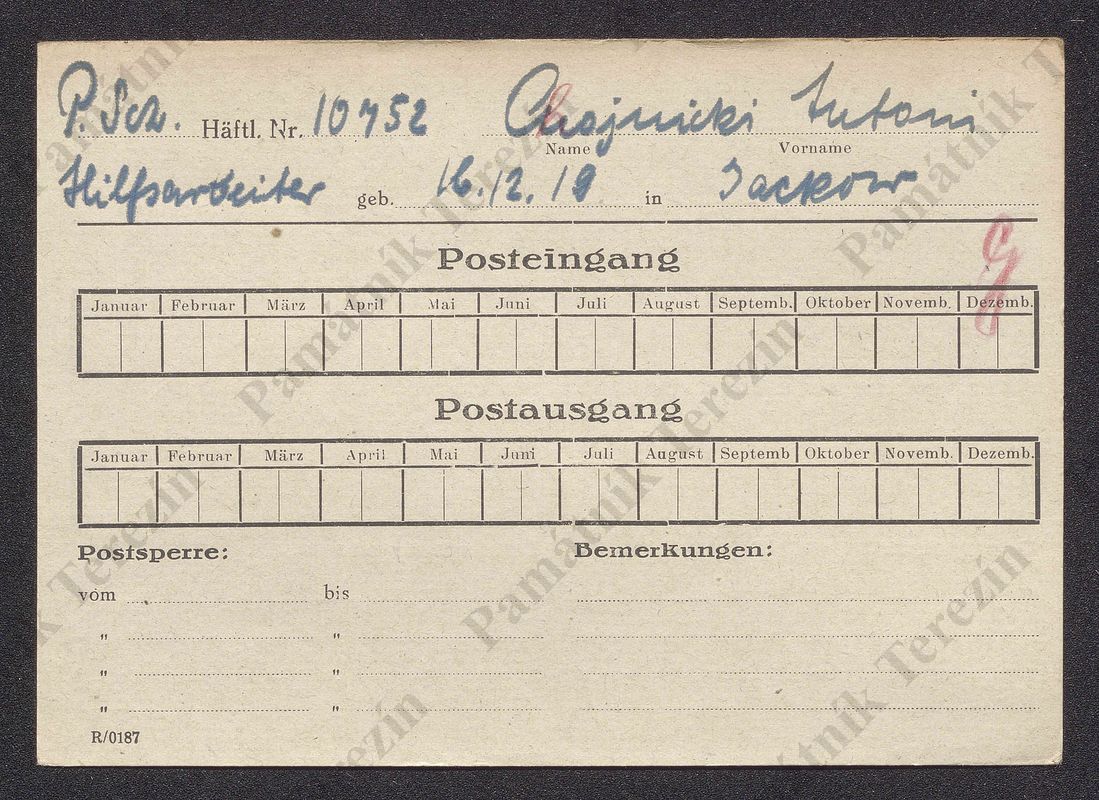 P. Sch. Häftl. Nr. 10752 Chojnicki Antoni
Name Vorname
Hilfsarbeiter geb. 16.12.19 in Jackow
Posteingang
Januar Februar März April Mai Juni Juli August Septemb. Oktober Novemb. Dezemb.
Postausgang
Januar Februar März April Mai Juni Juli August Septemb Oktober Novemb. Dezemb.
Postsperre: Bemerkungen:
vom bis
" "
" "
" "
R/0187
Památník Terezín